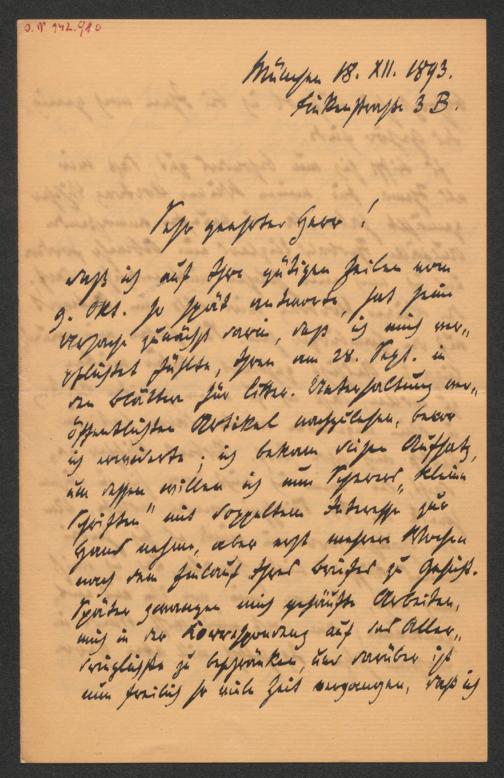 J. N 142.980
München 18. XII. 1893.
Finkenstraße 3 B.
Sehr geehrter Herr!
daß ich auf Ihre gütigen Zeilen vom
9. Okt. so spät antworte, hat seine
Ursache zunächst darin, daß ich mich ver„
pflichtet fühlte, Ihren am 28. Sept. in
den Blättern für litter. Unterhaltung ver„
öffentlichten Artikel nachzulesen, bevor
ich erwiderte; ich bekam diesen Aufsatz,
um dessen willen ich nun Scherers „Kleine
Schriften" mit doppeltem Interesse zur
Hand nehme, aber erst mehrere Wochen
nach dem Einlauf Ihres Briefes zu Gesicht.
Später zwangen mich gehäufte Arbeiten,
mich in der Korrespondenz auf das Aller„
dringlichste zu beschränken, und darüber ist
nun freilich so viele Zeit vergangen, daß ich